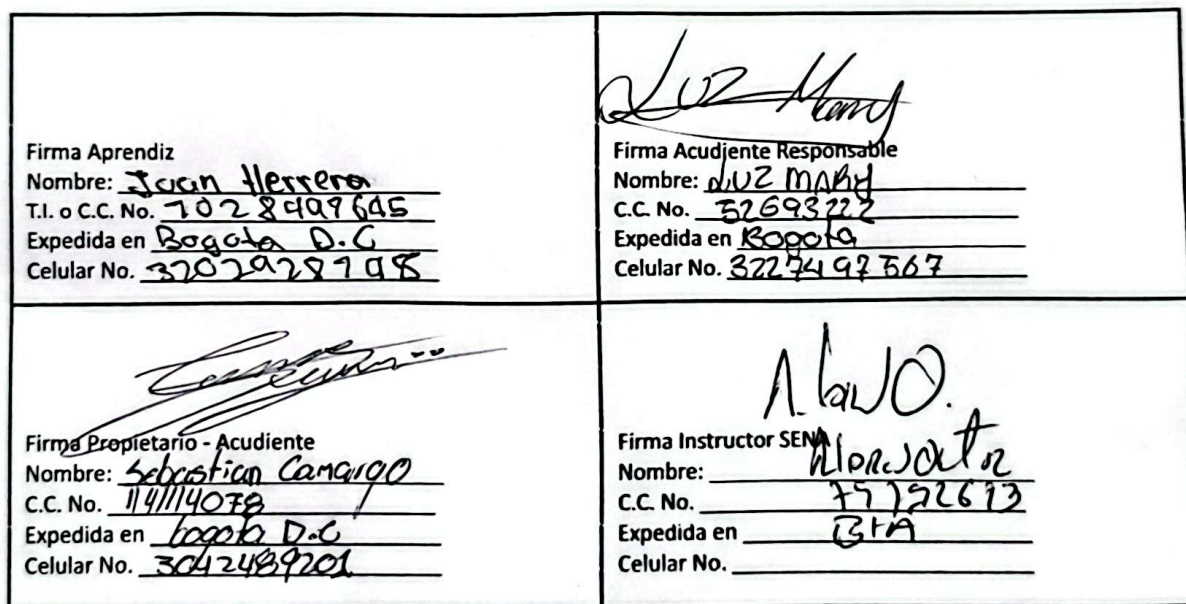 Firma Aprendiz
Nombre: Juan Herrera
T.I. o C.C. No. 1028499645
Expedida en Bogota D.C
Celular No. 3202928798
Luz Mary
Firma Acudiente Responsable
Nombre: LUZ MARY
C.C. No. 52693222
Expedida en Bogota
Celular No. 3227497567
Firma Propietario - Acudiente
Nombre: Sebastian Camargo
C.C. No. 1141114078
Expedida en bogota D.C
Celular No. 3042489201
Firma Instructor SENA
Nombre:
C.C. No. 79192613
Expedida en BTA
Celular No.